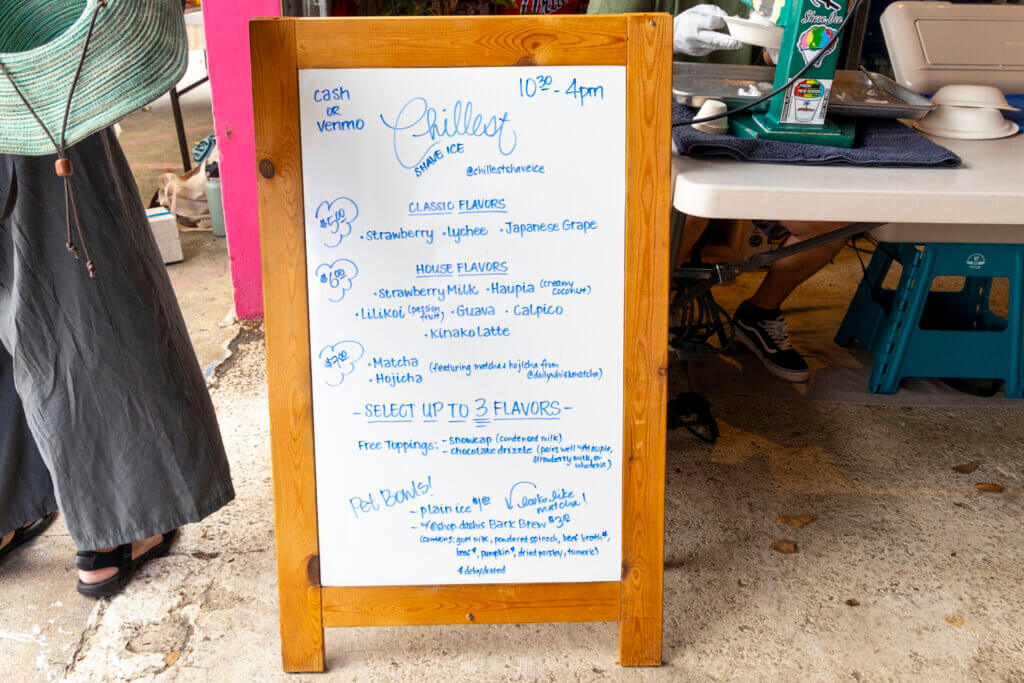 Cash
or
Venmo
10:30 - 4pm
Chillest
SHAVE ICE
@chillestshaveice
CLASSIC FLAVORS
$5.00
• Strawberry • Lychee • Japanese Grape
HOUSE FLAVORS
$6.00
• Strawberry Milk • Haupia (creamy coconut)
• LiLiKoi (passion fruit) • Guava • Calpico
• Kinako Latte
$7.00
• Matcha (featuring matcha & hojicha from
• Hojicha @dailywhiskmatcha)
- SELECT UP TO 3 FLAVORS -
Free Toppings: - snowcap (condensed milk)
- chocolate drizzle (pairs well w/ Haupia,
strawberry milk, or
whatever)
Pet Bowls!
looks like
matcha!
- plain ice $1.00
- w/ @shop.dashis Bark Brew $3.00
(contains: goat milk, powdered spinach, beef broth*,
beef*, pumpkin*, dried parsley, tumeric)
* dehydrated
Shave Ice